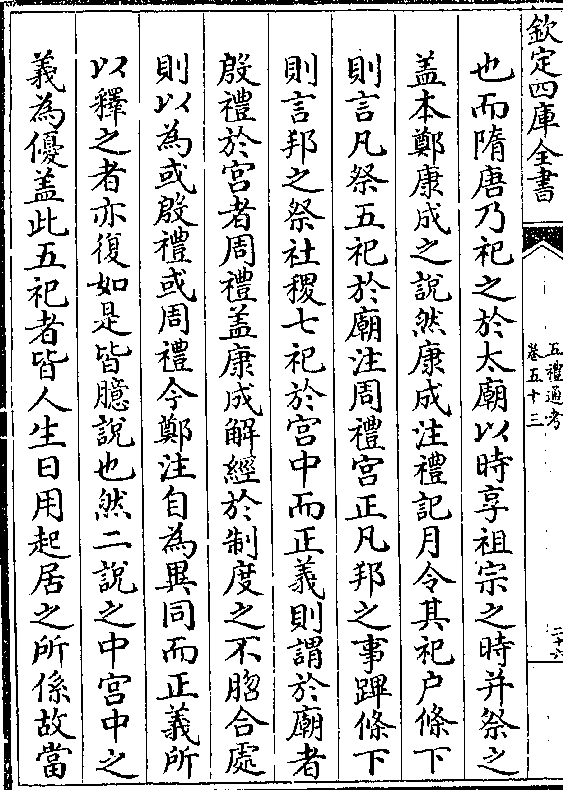 欽定四庫全書
五禮通考
卷五十三
二十六
也而隋唐乃祀之於太廟以時享祖宗之時并祭之
盖本鄭康成之說然康成注禮記月令其祀户條下
則言凡祭五祀於廟注周禮宫正凡邦之事蹕條下
則言邦之祭社稷七祀於宫中而正義則謂於廟者
殷禮於宫者周禮盖康成解經於制度之不脗合處
則以為或殷禮或周禮今鄭注自為異同而正義所
以釋之者亦復如是皆臆說也然二說之中宫中之
義為優盖此五祀者皆人生日用起居之所係故當